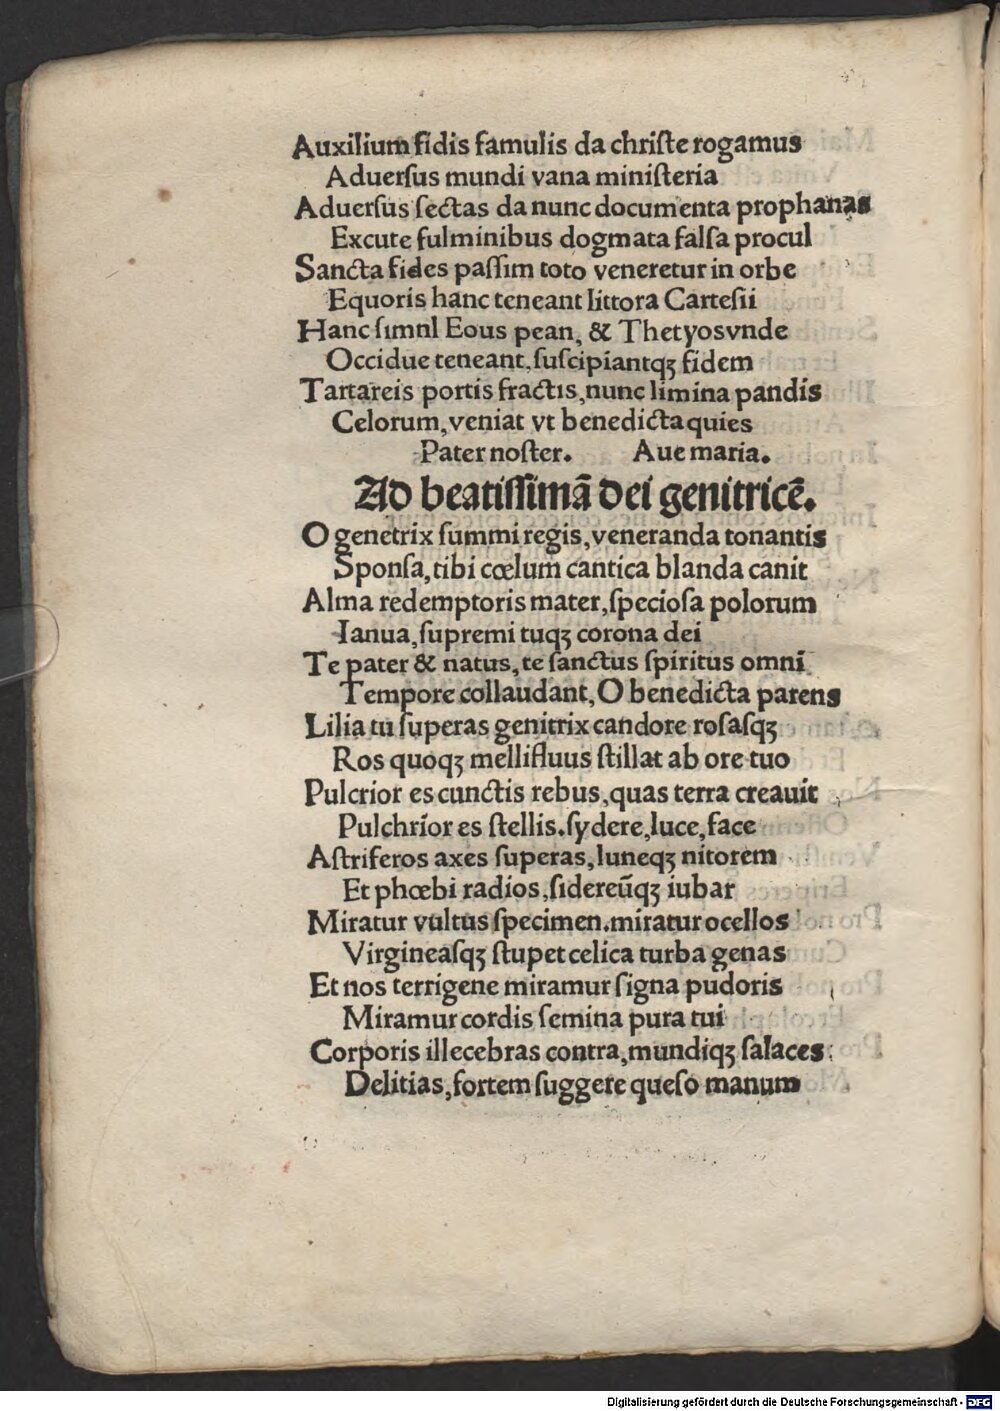 Auxilium fidis famulis da chriſte rogamus
Aduerſus mundi vana miniſteria
Aduerſus ſectas da nunc documenta prophanas
Excute fulminibus dogmata falſa procul
Sancta fides paſſim toto veneretur in orbe
Equoris hanc teneant littora Carteſii
Hanc ſimnl Eous pean, & Thetyosvnde
Occidue teneant, ſuſcipiantqꝫ fidem
Tartareis portis fractis, nunc limina pandis
Celorum, veniat vt benedicta quies
Pater noſter. Aue maria.
Ad beatiſſimā dei genitricē.
O genetrix ſummi regis, veneranda tonantis
Sponſa, tibi cœlum cantica blanda canit
Alma redemptoris mater, ſpecioſa polorum
Ianua, ſupremi tuqꝫ corona dei
Te pater & natus, te ſanctus ſpiritus omni
Tempore collaudant, O benedicta parens
Lilia tu ſuperas genitrix candore roſaſqꝫ
Ros quoqꝫ mellifluus ſtillat ab ore tuo
Pulcrior es cunctis rebus, quas terra creauit
Pulchrior es ſtellis. ſydere, luce, face
Aſtriferos axes ſuperas, luneqꝫ nitorem
Et phœbi radios, ſidereūqꝫ iubar
Miratur vultus ſpecimen. miratur ocellos
Virgineaſqꝫ ſtupet celica turba genas
Et nos terrigene miramur ſigna pudoris
Miramur cordis ſemina pura tui
Corporis illecebras contra, mundiqꝫ ſalaces
Delitias, fortem ſuggere queſo manum
Digitalisierung gefördert durch die Deutsche Forschungsgemeinschaft - DFG